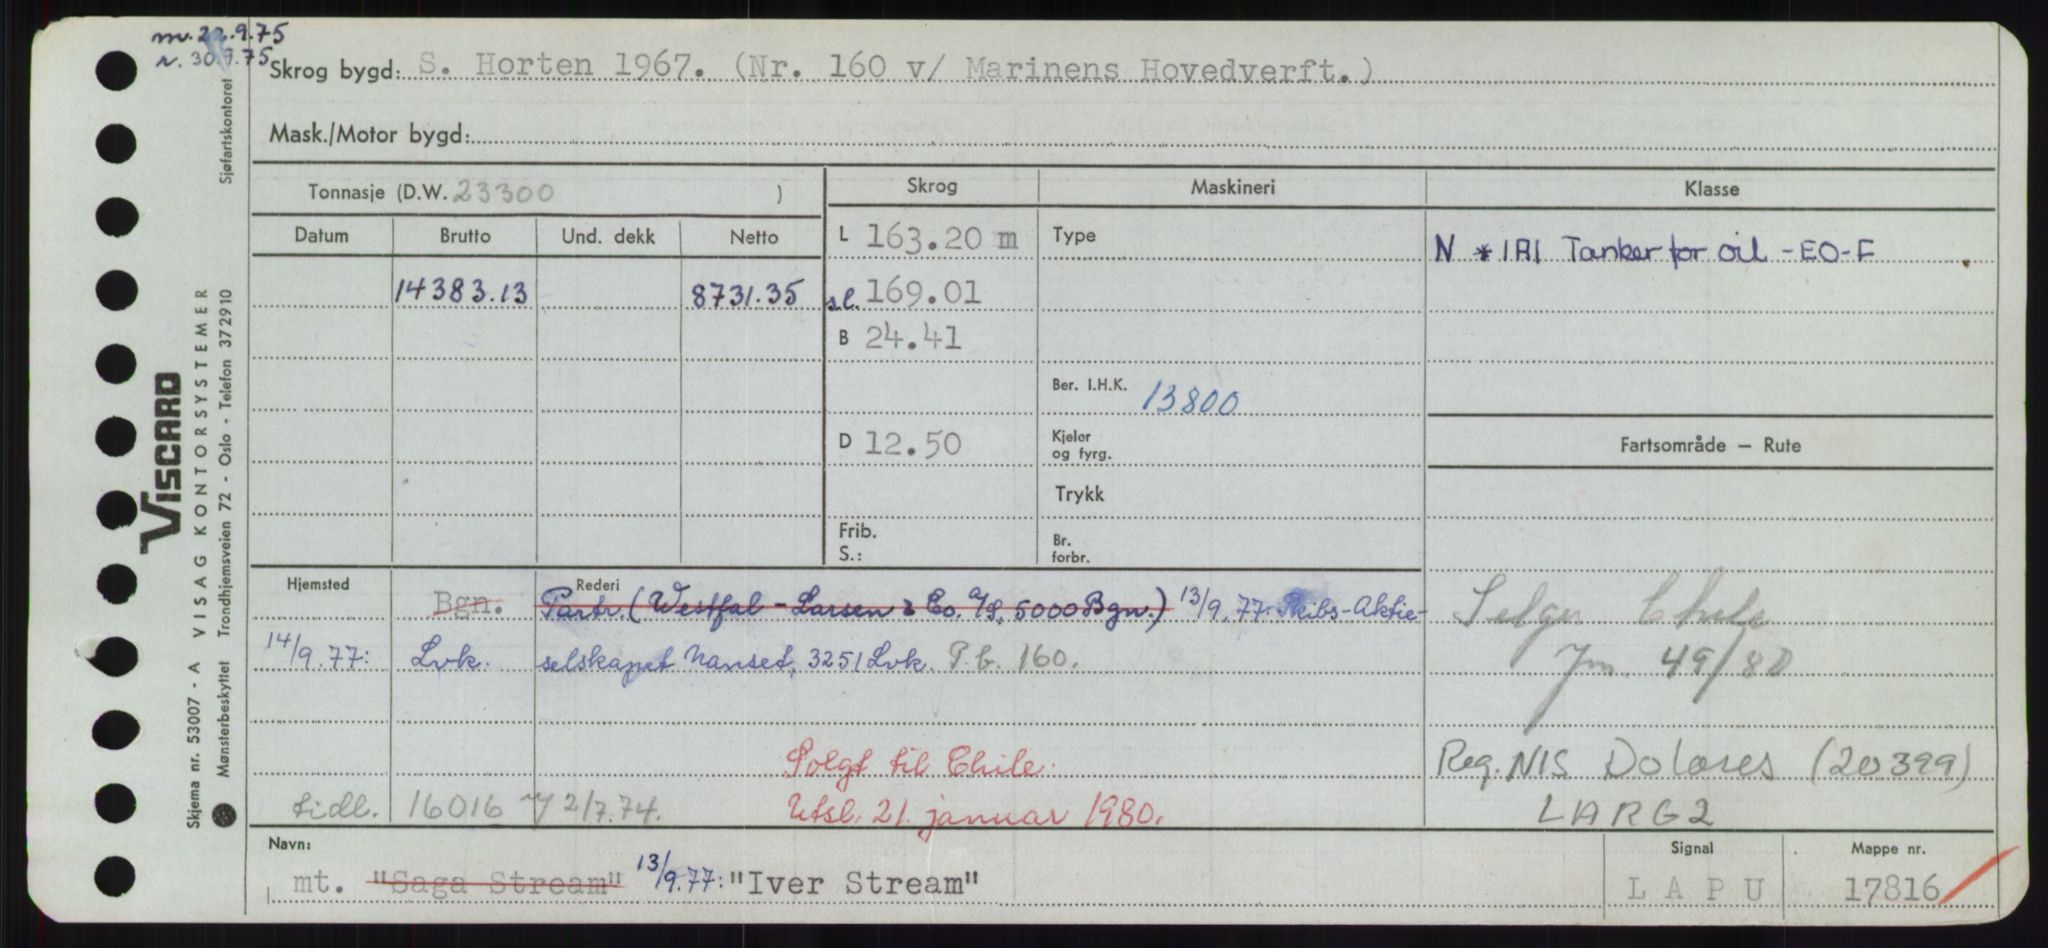 m. 22.9.75
r. 30.9.75
Skrog bygd: S. Horten 1967. (Nr. 160 v/ Marinens Hovedverft.)
Mask./Motor bygd:
Tonnasje (D.W. 23300 )
Skrog Maskineri Klasse
Datum Brutto Und. dekk Netto
L 163.20 m Type
N *1A1 Tanker for oil -EO-F
14383.13 8731.35
sl. 169.01
B 24.41
Ber. I.H.K. 13800
D 12.50
Kjeler
og fyrg.
Fartsområde — Rute
Trykk
Frib.
S.:
Br.
forbr.
Hjemsted Rederi
Bgn. Partr. (Westfal-Larsen & Co. A/S, 5000 Bgn.) 13/9.77: Skibs-Aktie-
14/9.77: Lvk. selskapet Nanset, 3251 Lvk. P.b. 160.
Selges Chile
Jm. 49/80
Solgt til Chile.
Reg. NIS Dolores (20399)
tidl. 16016 2/7.74. Utsl. 21. januar 1980.
LARG2
Navn: Signal Mappe nr.
mt. "Saga Stream" 13/9.77: "Iver Stream" LAPU 17816
Skjema nr. 53007 - A VISAG KONTORSYSTEMER
Mønsterbeskyttet Trondhjemsveien 72 - Oslo - Telefon 372910
Sjøfartskontoret
VISCARD